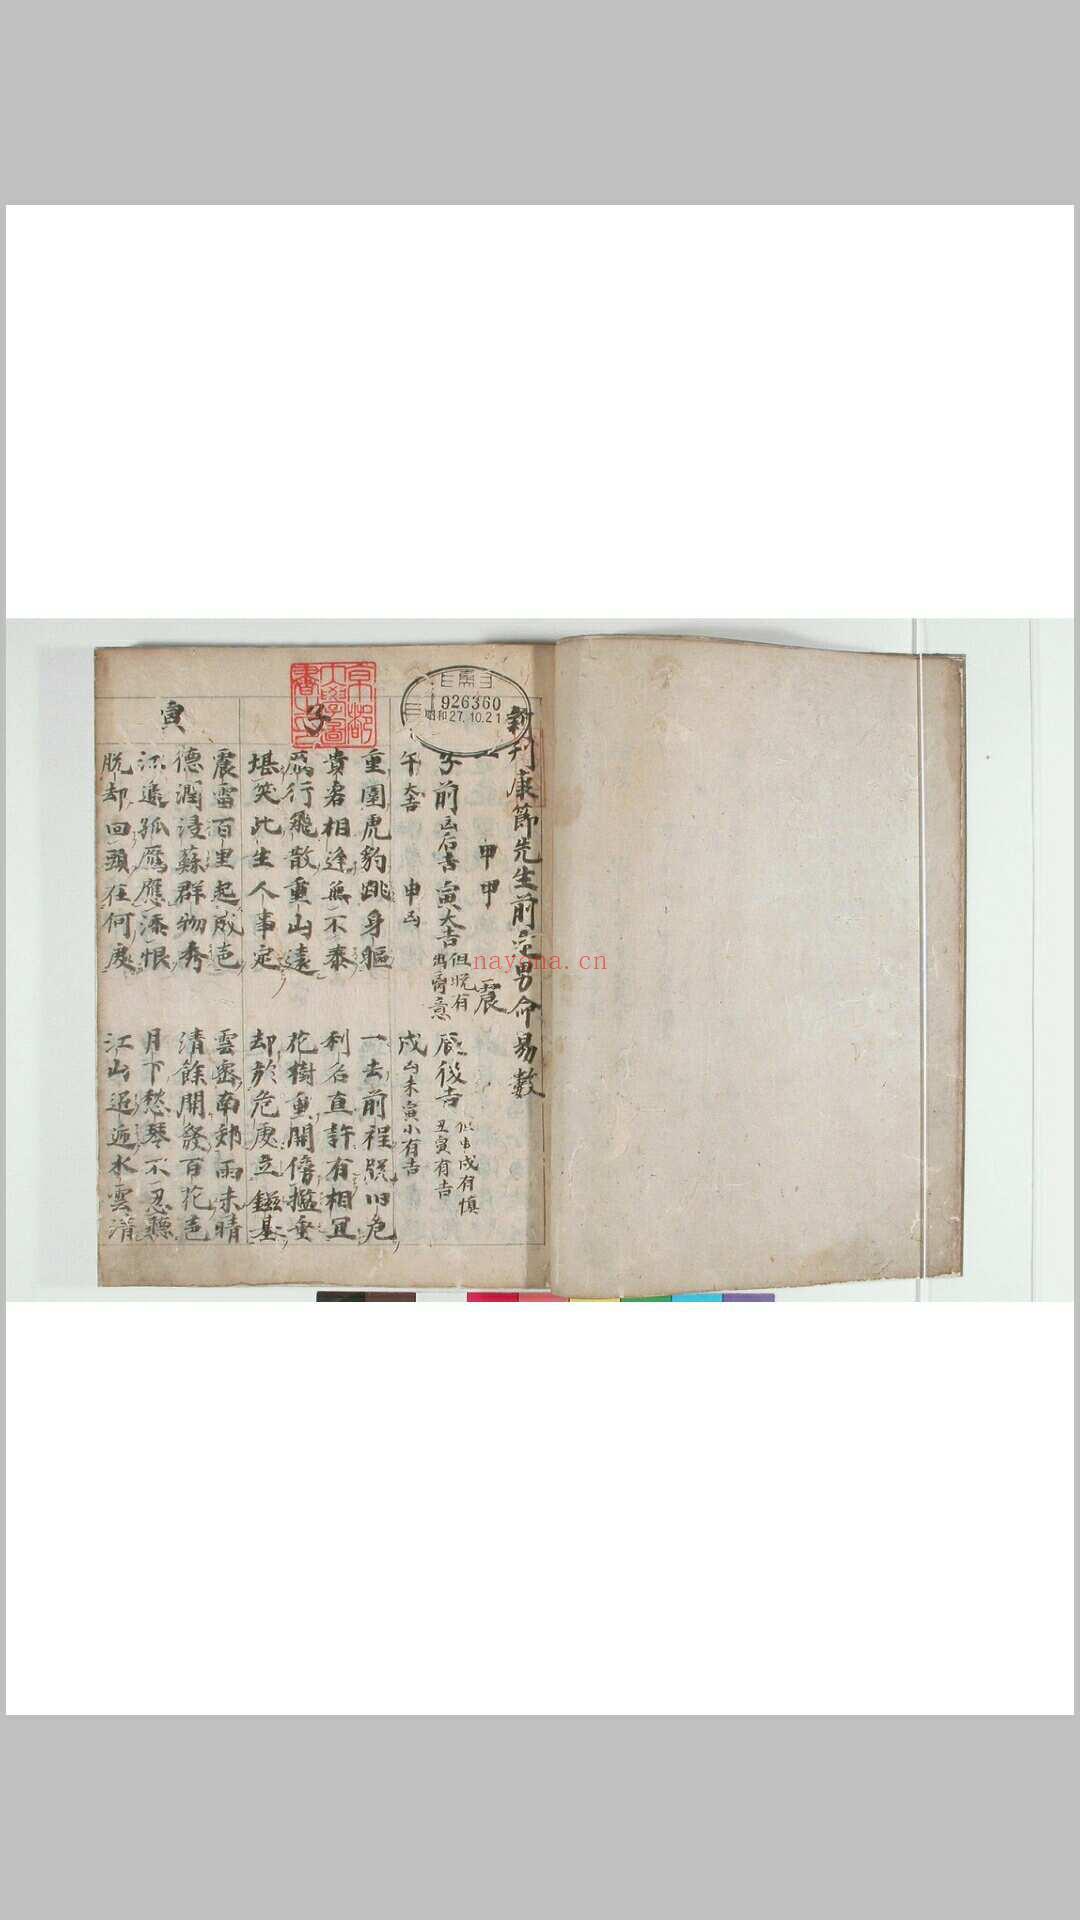 新刊康節先生前定男命易數
一 甲甲 震
子前凶后吉 寅大吉 但晚有出齊意 辰後吉 但申戌有慎 丑寅有吉
午大吉 申凶 戌凶未寅小有吉
子
重圍虎豹跳身軀 一去前程脫旧危
貴君相逢無不泰 利名直許有相宜
鴈行飛散重山遠 花樹重開傍檻垂
堪笑此生人事定 却於危處立鎡基
寅
震雷百里起威邑 雲密南郊雨未晴
德潤浸蘇群物秀 清餘開發百花色
孤鴈應添恨 月下愁琴不忍聽
脫却回頭在何處 江山迢遞水雲清
京都大學圖書之印
926360
昭和27.10.21
nayona.cn